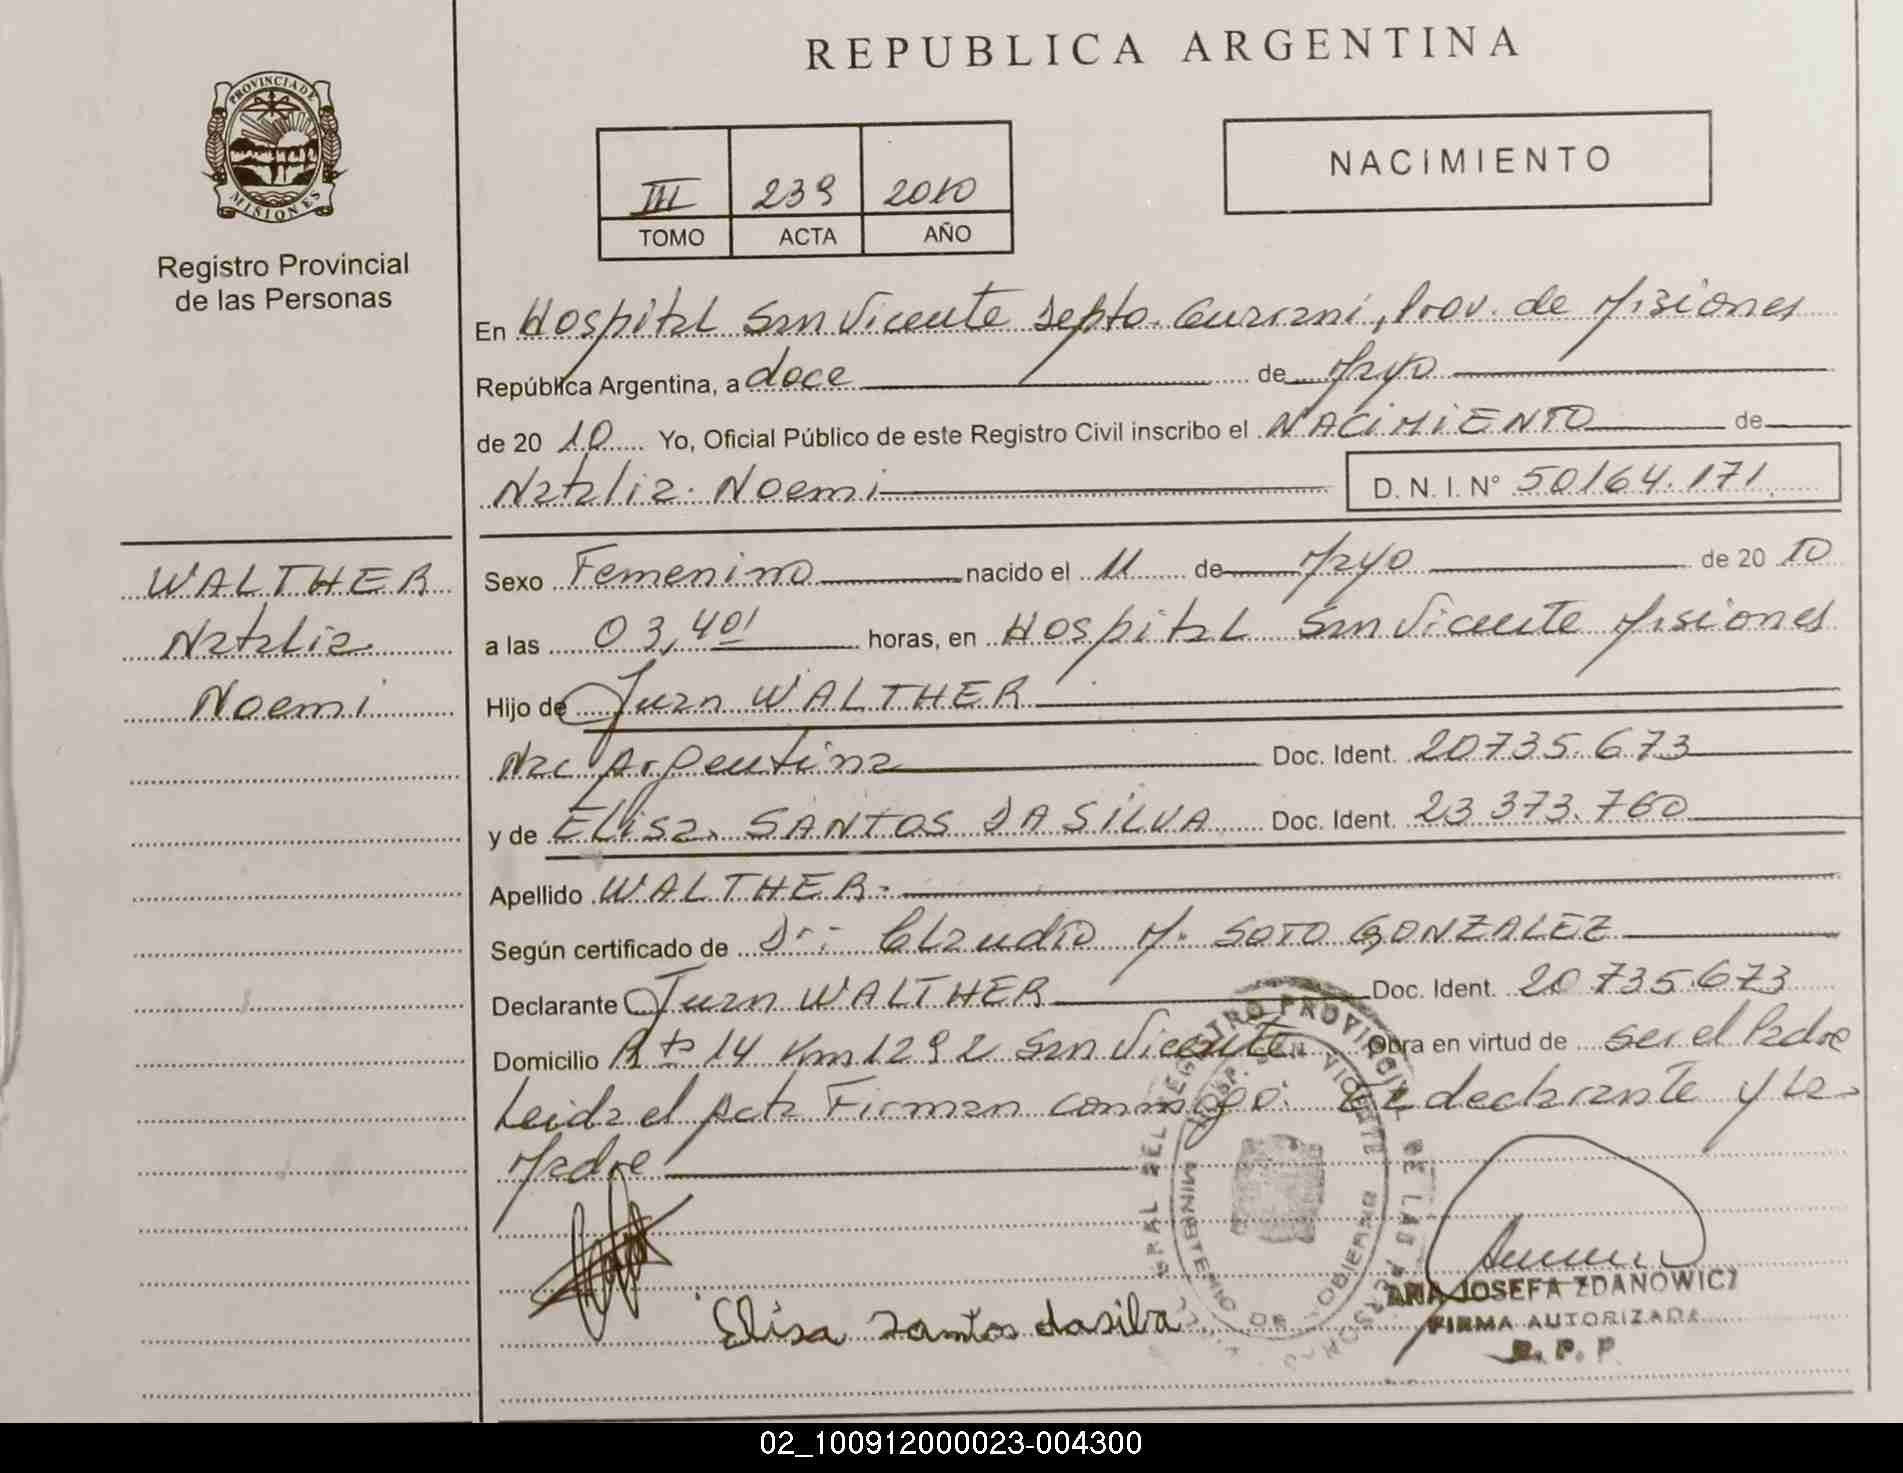 REPUBLICA ARGENTINA
PROVINCIA DE
MISIONES
Registro Provincial
de las Personas
III 239 2010
TOMO ACTA AÑO
NACIMIENTO
En Hospital San Vicente Depto. Guarani, Prov. de Misiones
República Argentina, a doce de Mayo
de 20 10 Yo, Oficial Público de este Registro Civil inscribo el NACIMIENTO de
Natalia Noemi D. N. I. Nº 50164.171
WALTHER
Natalia
Noemi
Sexo Femenino nacido el 11 de Mayo de 20 10
a las 03,40' horas, en Hospital San Vicente Misiones
Hijo de Juan WALTHER
Nac Argentina Doc. Ident. 20735.673
y de Elisa SANTOS DA SILVA Doc. Ident. 23 373.760
Apellido WALTHER
Según certificado de Dr: Claudio M. SOTO GONZALEZ
Declarante Juan WALTHER Doc. Ident. 20 735.673
Domicilio Rta 14 Km 1292 San Vicente Obra en virtud de ser el Padre
Leida el Acta Firman conmigo: El declarante y La
Madre
Elisa Santos dasilva
REGISTRO PROVINCIAL DE LAS PERSONAS
HOSP. SAN VICENTE
MINISTERIO DE GOBIERNO
ANA JOSEFA ZDANOWICZ
FIRMA AUTORIZADA
R. P. P.
02_100912000023-004300